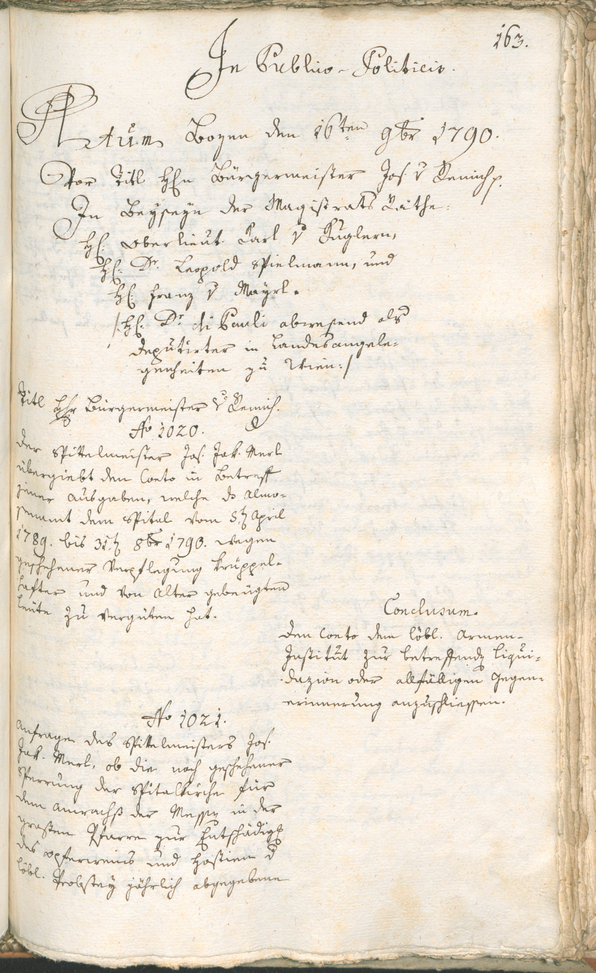 163.
In Publico-Politicis.
Actum Bozen den 16ten 9br 1790.
Vor Titl Hℓn Bürgermeister Jos. v Remich
In Beyseyn der Magistrats Räthe:
Hℓ. Oberlieut. Karl v Kuglern,
Hℓ. Dr. Leopold Spielmann, und
Hℓ Franz v Mayrl.
/:Hℓ. Dr di Pauli abwesend als
deputirter in Landesangele-
genheiten zu Wien:/
Titl Hℓr Bürgermeister v Remich.
No 1020.
Der Spittelmeister Jos. Jak. Merl
übergiebt den Conto in Betreff
jener Ausgaben, welche ds Almo-
senamt dem Spital vom 5t April
1789. bis 31t 8br 1790. wegen
geschehener Verpflegung krüppel-
hafter und von Alter gebeugten
Leute zu vergüten hat.
Conclusum.
Den Conto dem löbl. Armen-
Institut zur betreffend Liqui-
dazion oder allfälligen Gegen-
erinnerung anzuschliessen.
No 1021.
Anfrage des Spittelmeisters Jos.
Jak. Merl, ob die nach geschehener
Sperrung der Spitalkirche für
dem Anwachs der Messen in der
grossen Pfarre zur Entschädig
des Opferweins und Hostien d
löbl. Probstey jährlich abgegebene